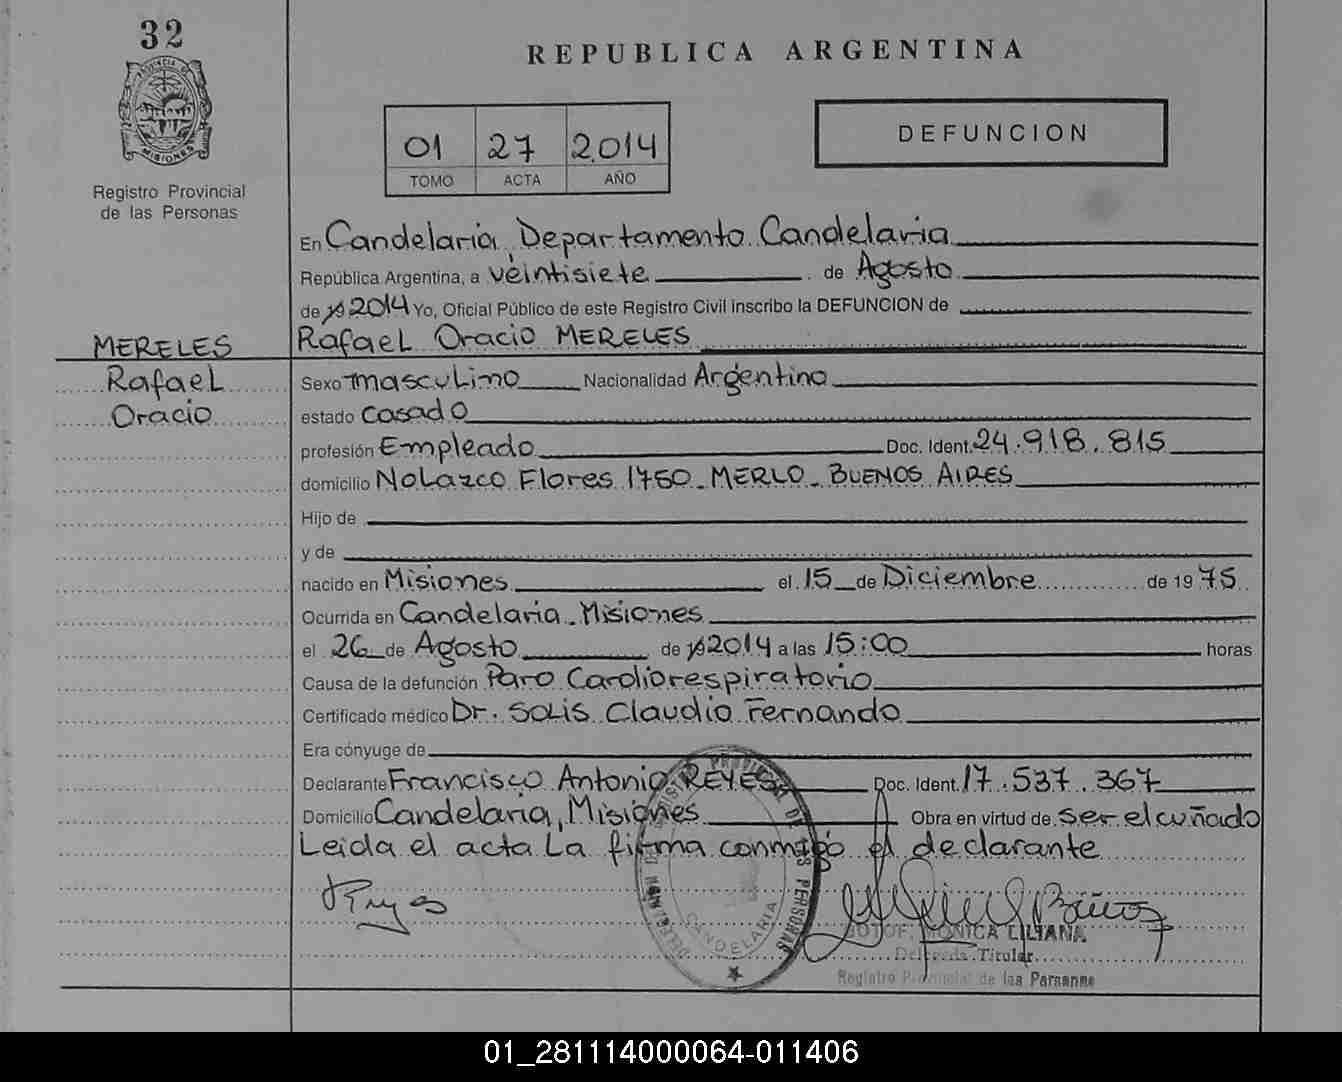 32
REPUBLICA ARGENTINA
PROVINCIA DE
MISIONES
Registro Provincial
de las Personas
01 27 2014
TOMO ACTA AÑO
DEFUNCION
En Candelaria, Departamento Candelaria
República Argentina, a veintisiete de Agosto
de 2014 Yo, Oficial Público de este Registro Civil inscribo la DEFUNCION de
MERELES Rafael Oracio MERELES
Rafael Sexo masculino Nacionalidad Argentino
Oracio estado casado
profesión Empleado Doc. Ident. 24.918.815
domicilio Nolazco Flores 1750 - MERLO - BUENOS AIRES
Hijo de
y de
nacido en Misiones el 15 de Diciembre de 1975
Ocurrida en Candelaria - Misiones
el 26 de Agosto de 2014 a las 15:00 horas
Causa de la defunción Paro Cardiorespiratorio
Certificado médico Dr. SOLIS Claudio Fernando
Era cónyuge de
Declarante Francisco Antonio REYES Doc. Ident. 17.537.367
Domicilio Candelaria, Misiones Obra en virtud de ser el cuñado
Leida el acta La firma conmigo el declarante
Reyes
CANDELARIA
MONICA LILIANA
Delegada Titular
Registro Provincial de las Personas
01_281114000064-011406